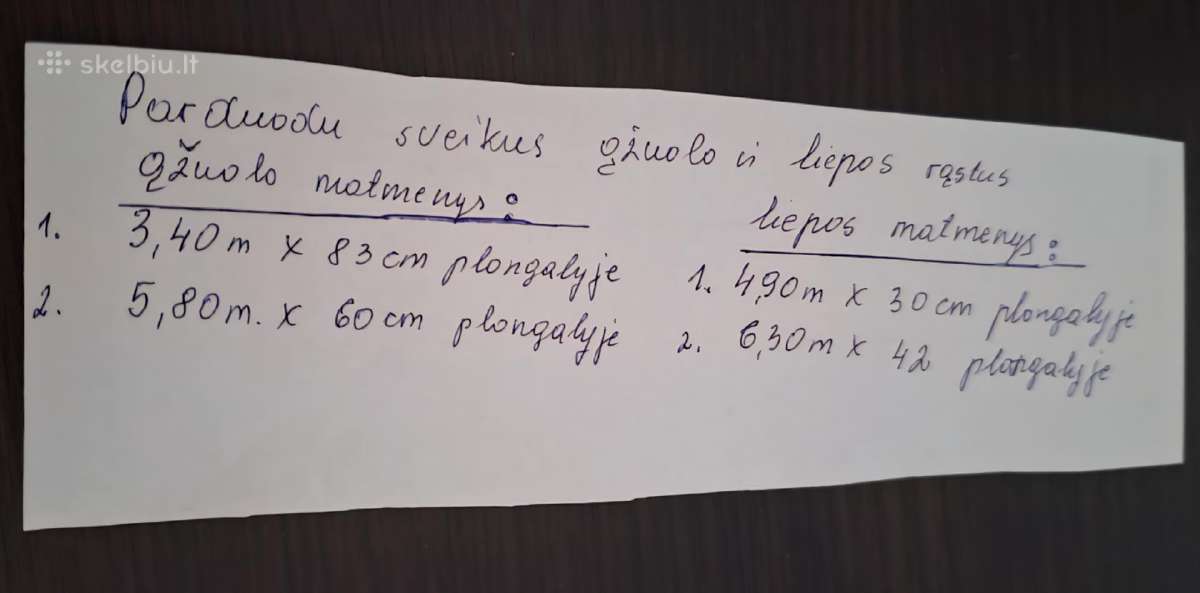 skelbiu.lt
Parduodu sveikus ąžuolo ir liepos rąstus
ąžuolo matmenys:
1. 3,40m x 83cm plongalyje
2. 5,80m. x 60cm plongalyje
liepos matmenys:
1. 4,90m x 30cm plongalyje
2. 6,30m x 42 plongalyje